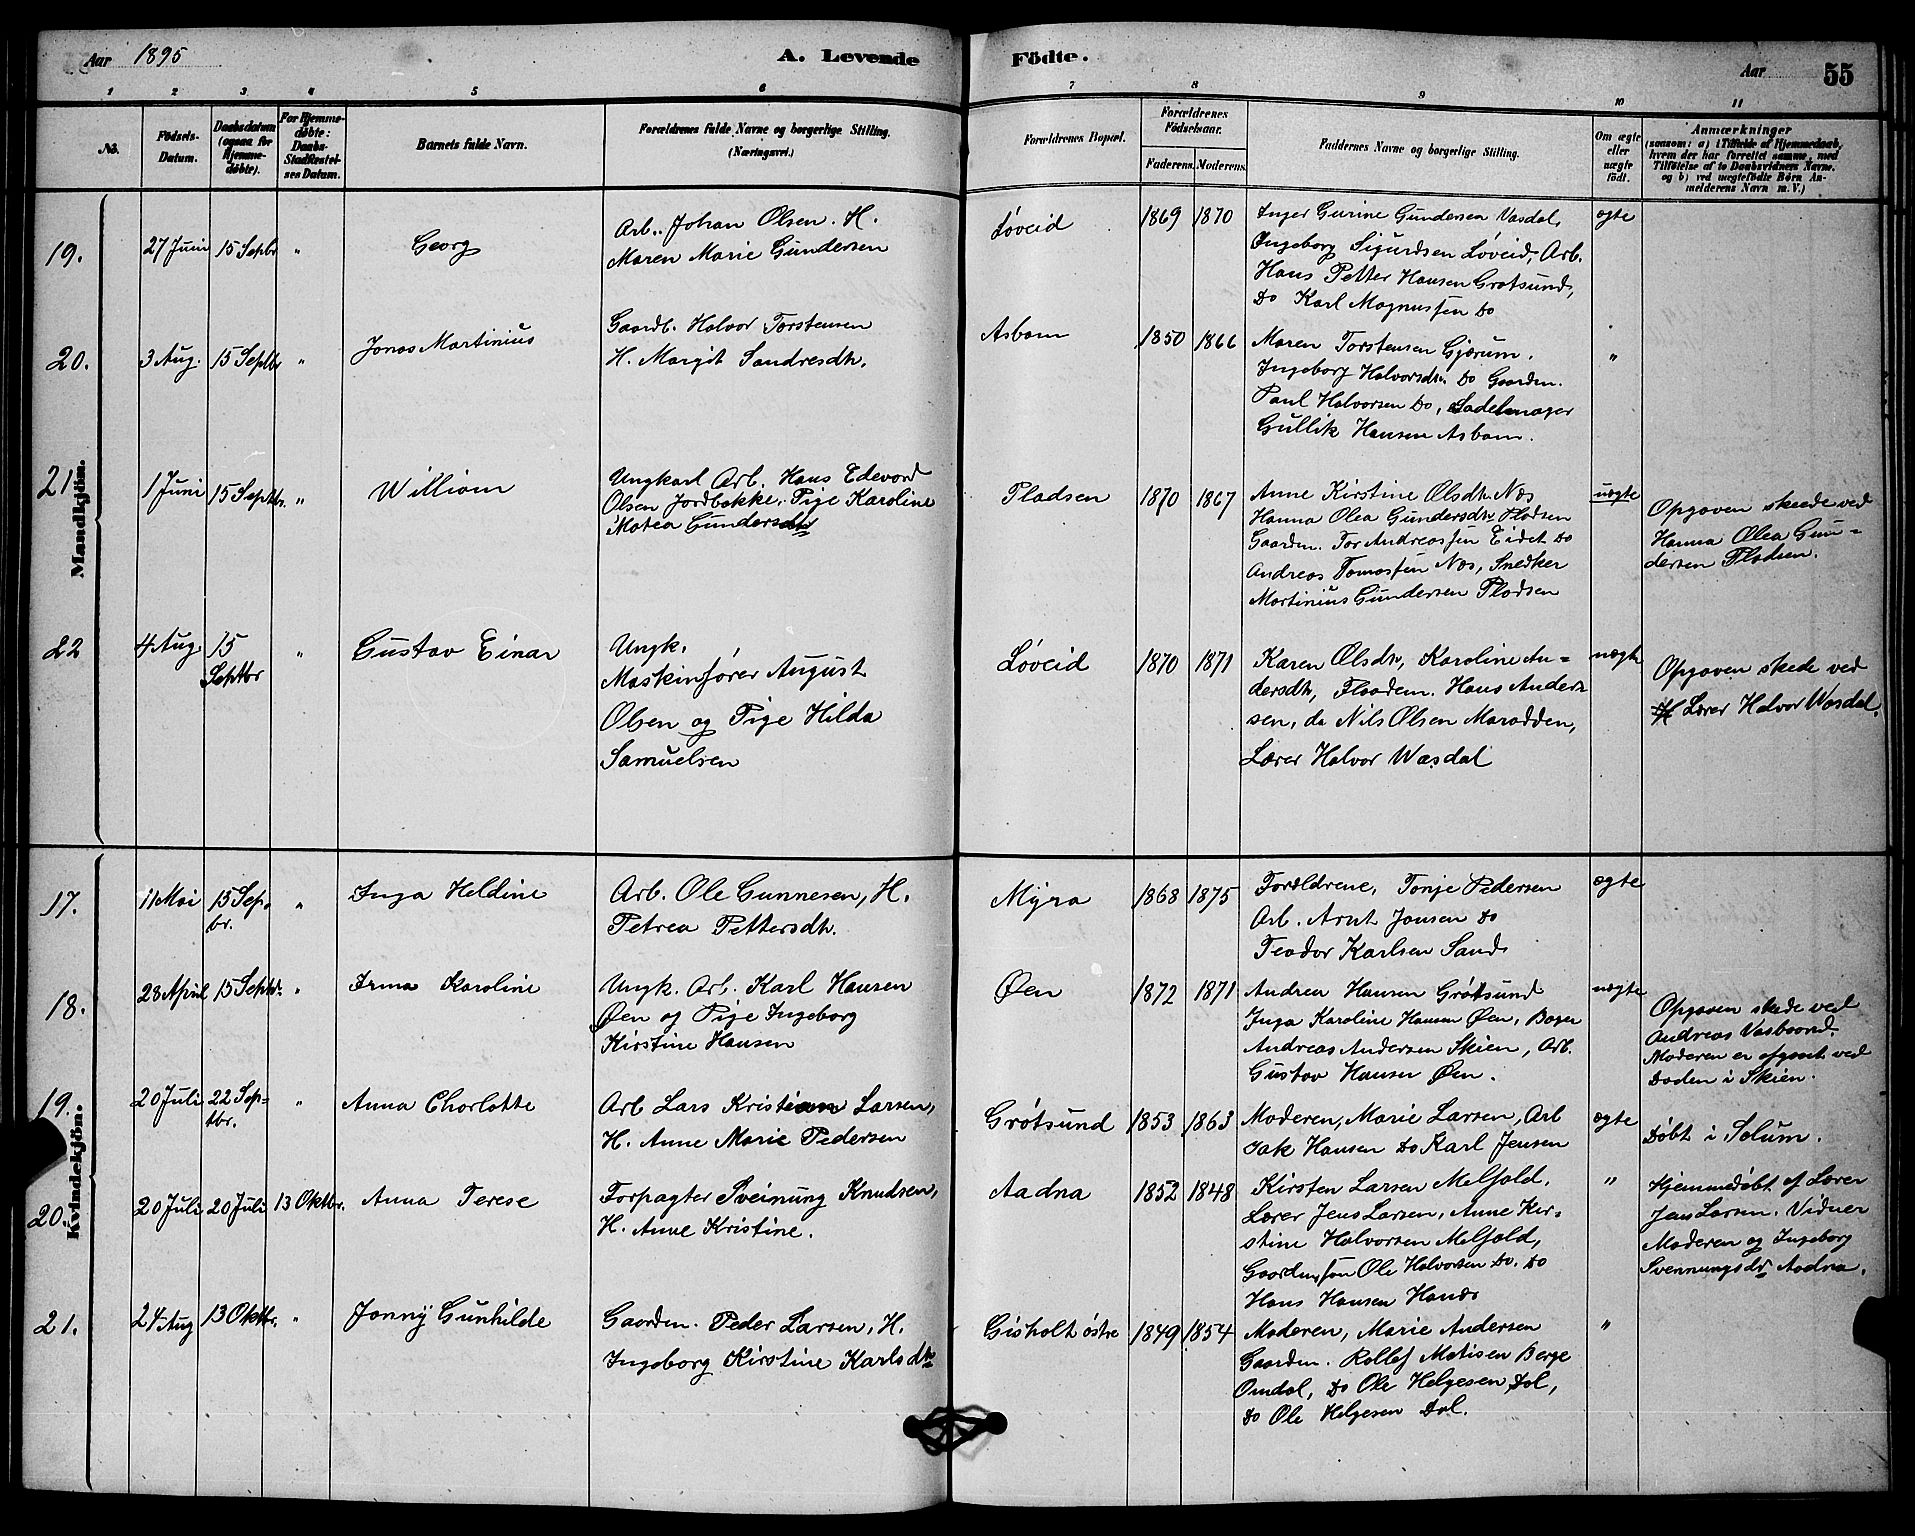 Aar 1895
A. Levende
Födte.
Aar
55
1 2 3 4 5 6 7 8 9 10 11
No.
Födsels-
Datum.
Daabsdatum
(ogsaa for
Hjemme-
döbte).
For Hjemme-
döbte:
Daabs-
Stadfæstel-
ses Datum.
Barnets fulde Navn.
Forældrenes fulde Navne og borgerlige Stilling.
(Næringsvei.)
Forældrenes Bopæl.
Forældrenes
Födselsaar.
Faderens. Moderens.
Faddernes Navne og borgerlige Stilling.
Om ægte
eller
uægte
födt.
Anmærkninger
(saasom: a) i Tilfælde af Hjemmedaab,
hvem der har forrettet samme, med
Tilföielse af to Daabsvidners Navne,
og b) ved uægtefödte Börn An-
melderens Navn m. V.)
Mandkjön.
19. 27 Juni 15 Sepbr " Georg
Arb. Johan Olsen. H.
Maren Marie Gundersen
Løveid 1869 1870
Inger Gurine Gundersen Vasdal,
Ingeborg Sigurdsen Løveid, Arb.
Hans Petter Hansen Grotsund,
Do Karl Magnussen Do
ægte
20. 3 Aug. 15 Septbr " Jonas Martinius
Gaardb. Halvor Torstensen
H. Margit Sandresdtr.
Asbom 1850 1866
Maren Torstensen Gjerum.
Ingeborg Halvorsdtr. Do Gaardm.
Paul Halvorsen Do, Sadelmager
Gullik Hansen Asbom.
"
21. 1 Juni 15 Septbr. " William
Ungkarl Arb. Hans Edevard
Olsen Jordbakke. Pige Karoline
Matea Gundersdtr
Pladsen 1870 1867
Anne Kirstine Olsdtr. Næs
Hanna Olea Gundersdtr Pladsen
Gaardm. Tor Andreassen Eidet Do
Andreas Tomassen Næs, Snedker
Martinius Gundersen Pladsen
uægte
Opgaven skeede ved
Hanna Olea Gun-
dersen Pladsen.
22 4 Aug. 15
Septbr " Gustav Einar
Ungk.
Maskinfører August
Olsen og Pige Hilda
Samuelsen
Løveid 1870 1871
Karen Olsdtr, Karoline An-
dersdtr, Flaadem. Hans Ander-
sen, do Nils Olsen Marodden,
Lærer Halvor Wasdal
uægte
Opgaven skede ved
Lærer Halvor Wasdal.
Kvindekjön.
17. 11 Mai 15 Sep.
br. " Inga Heldine
Arb. Ole Gunnesen, H.
Petrea Pettersdtr.
Myra 1868 1875
Forældrene, Tonje Pedersen
Arb. Arnt Jansen Do
Teodor Karlsen Sand
ægte
18. 28 April 15 Septbr. " Irma Karoline
Ungk. Arb. Karl Hansen
Øen og Pige Ingeborg
Kirstine Hansen
Øen 1872 1871
Andrea Hansen Grøtsund
Inga Karoline Hansen Øen, Bager
Andreas Andersen Skien, Arb.
Gustav Hansen Øen.
uægte
Opgaven skede ved
Andreas Vasbaand.
Moderen er afgaat ved
Døden i Skien.
19. 20 Juli 22 Sep-
tbr. " Anna Charlotte
Arb Lars Kristian Larsen,
H. Anne Marie Pedersen
Grøtsund 1853 1863
Moderen, Marie Larsen, Arb
Isak Hansen Do Karl Jensen
ægte
Døbt i Solum.
20. 20 Juli 20 Juli 13 Oktbr. Anna Terese
Forpagter Sveinung Knudsen,
H. Anne Kristine.
Aadna 1852 1848
Kirsten Larsen Melfald,
Lærer Jens Larsen, Anne Kir-
stine Halvorsen Melfald,
Gaardm.søn Ole Halvorsen Do. Do
Hans Hansen Hande
"
Hjemmedøbt af Lærer
Jens Larsen. Vidner
Moderen og Ingeborg
Svennungsdr Aadna.
21. 24 Aug 13 Oktbr. " Jonny Gunhilde
Gaardm. Peder Larsen, H.
Ingeborg Kirstine Karlsdtr
Gisholt østre 1849 1854
Moderen, Marie Andersen
Gaardm. Rollef Matisen Berge
Omdal, Do Ole Helgesen Dal,
Do Ole Helgesen Dal.
"